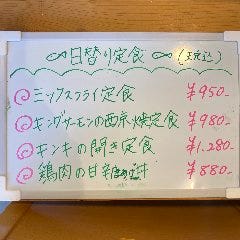 日替り定食 (税込)
ミックスフライ定食 ¥950-
キングサーモンの西京焼定食 ¥980-
キンキの開き定食 ¥1,280-
鶏肉の甘辛丼 ¥880-